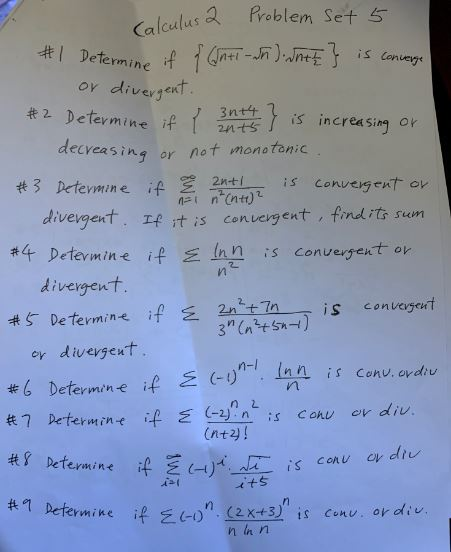 Calculus 2 Problem Set 5
#1 Determine if {(√n+1 - √n)·√n+½} is converge
or divergent.
#2 Determine if { 3n+4 / 2n+5 } is increasing or
decreasing or not monotonic.
#3 Determine if ∞ Σ n=1 2n+1 / n²(n+1)² is convergent or
divergent. If it is convergent, find its sum
#4 Determine if Σ ln n / n² is convergent or
divergent.
#5 Determine if Σ 2n²+7n / 3ⁿ(n²+5n-1) is convergent
or divergent.
#6 Determine if Σ (-1)ⁿ⁻¹ · ln n / n is conv. or div
#7 Determine if Σ (-2)ⁿ·n² / (n+2)! is conv or div.
#8 Determine if ∞ Σ i=1 (-1)ⁱ · √i / i+5 is conv or div
#9 Determine if Σ(-1)ⁿ · (2x+3)ⁿ / n ln n is conv. or div.